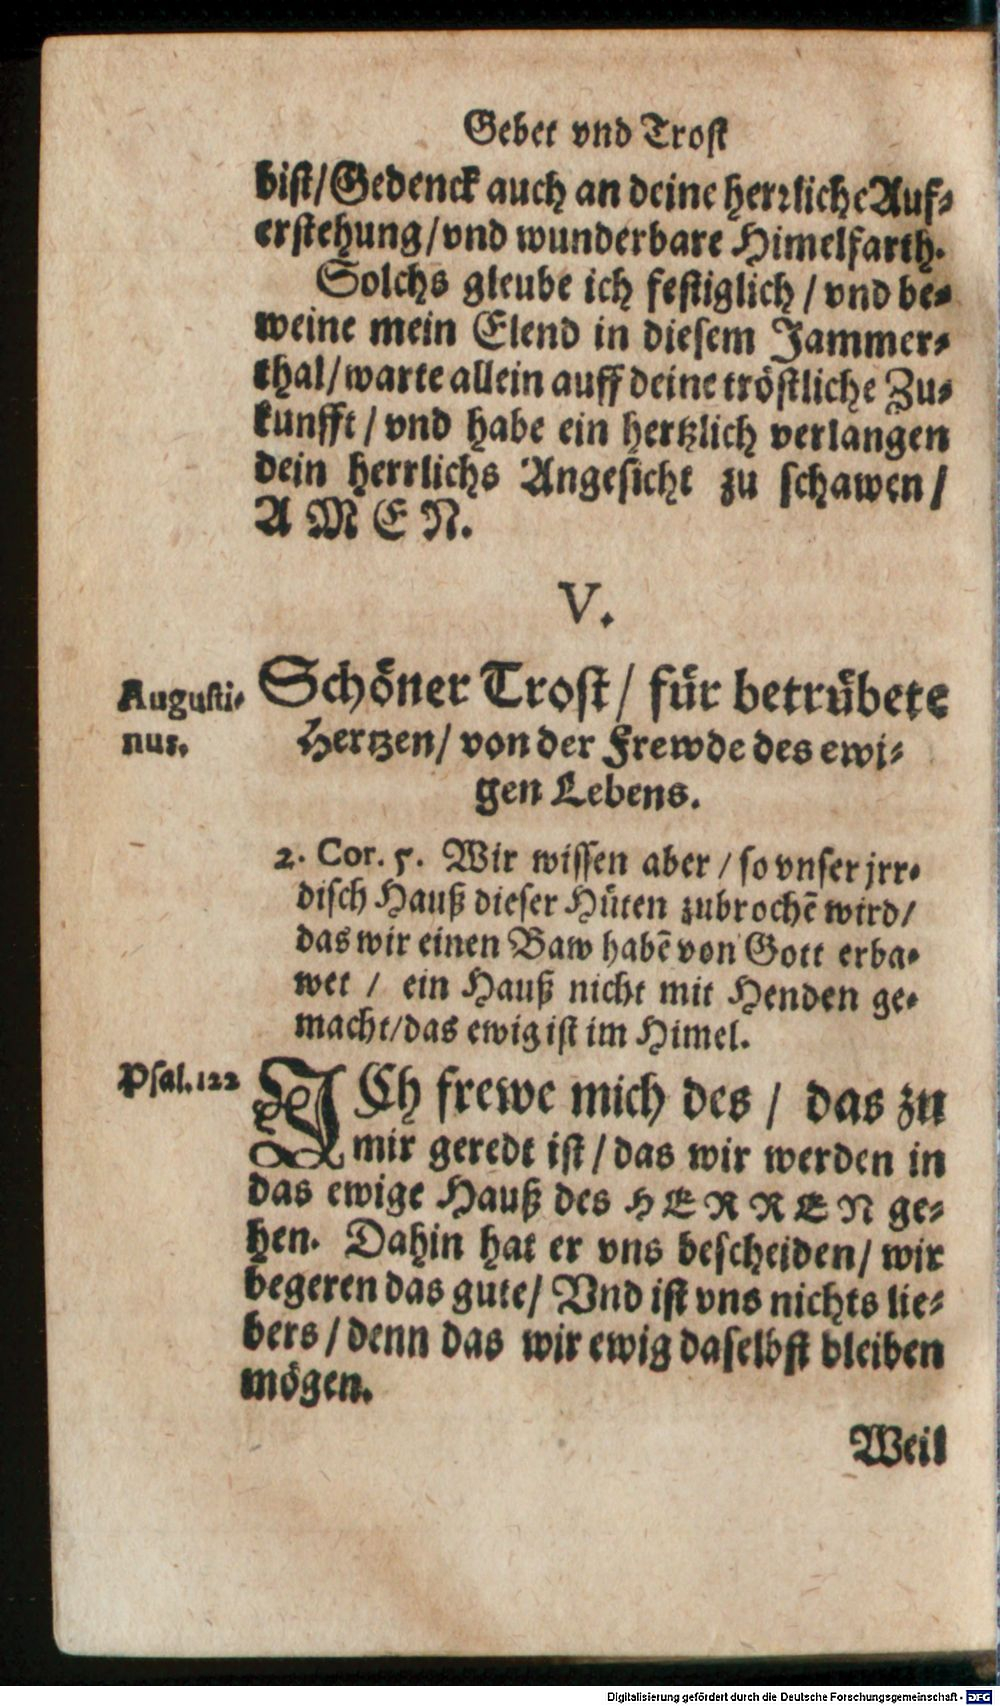 Gebet vnd Trost
bist/Gedenck auch an deine herꝛliche Auf-
erstehung/vnd wunderbare Himelfarth.
Solchs gleube ich festiglich / vnd be-
weine mein Elend in diesem Jammer-
thal/warte allein auff deine tröstliche Zu-
kunfft / vnd habe ein hertzlich verlangen
dein herrlichs Angesicht zu schawen /
A M E N.
V.
Augusti-
nus.
Schöner Trost / für betrübete
Hertzen/ von der Frewde des ewi-
gen Lebens.
2. Cor. 5. Wir wissen aber / so vnser jrr-
disch Hauß dieser Hüten zubrochē wird/
das wir einen Baw habē von Gott erba-
wet / ein Hauß nicht mit Henden ge-
macht/das ewig ist im Himel.
Psal. 122
ICh frewe mich des / das zu
mir geredt ist / das wir werden in
das ewige Hauß des HERREN ge-
hen. Dahin hat er vns bescheiden/ wir
begeren das gute/ Vnd ist vns nichts lie-
bers / denn das wir ewig daselbst bleiben
mögen.
Weil
Digitalisierung gefördert durch die Deutsche Forschungsgemeinschaft - DFG